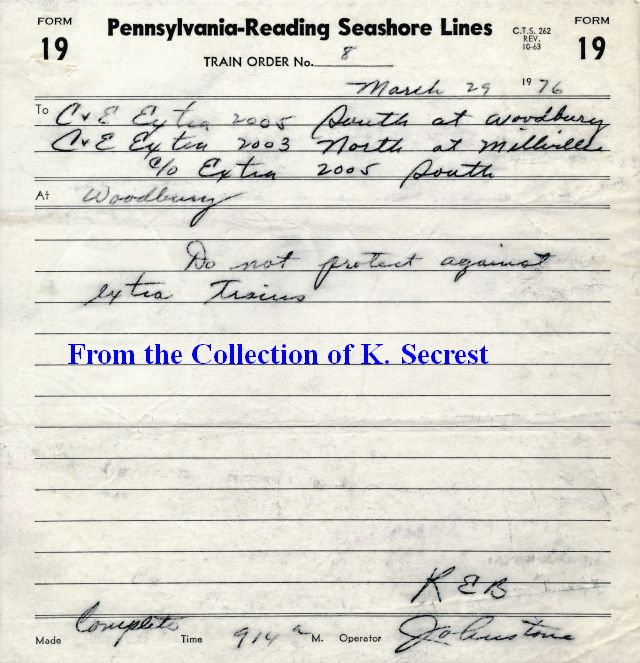 FORM 19 Pennsylvania-Reading Seashore Lines C.T.S. 262 REV. 10-63 FORM 19
TRAIN ORDER No. 8
March 29 1976
To C & E Extra 2005 South at Woodbury
C & E Extra 2003 North at Millville
c/o Extra 2005 South
At Woodbury
Do not protect against
extra Trains
From the Collection of K. Secrest
R E B
Made Complete Time 914 a M. Operator Johnstone